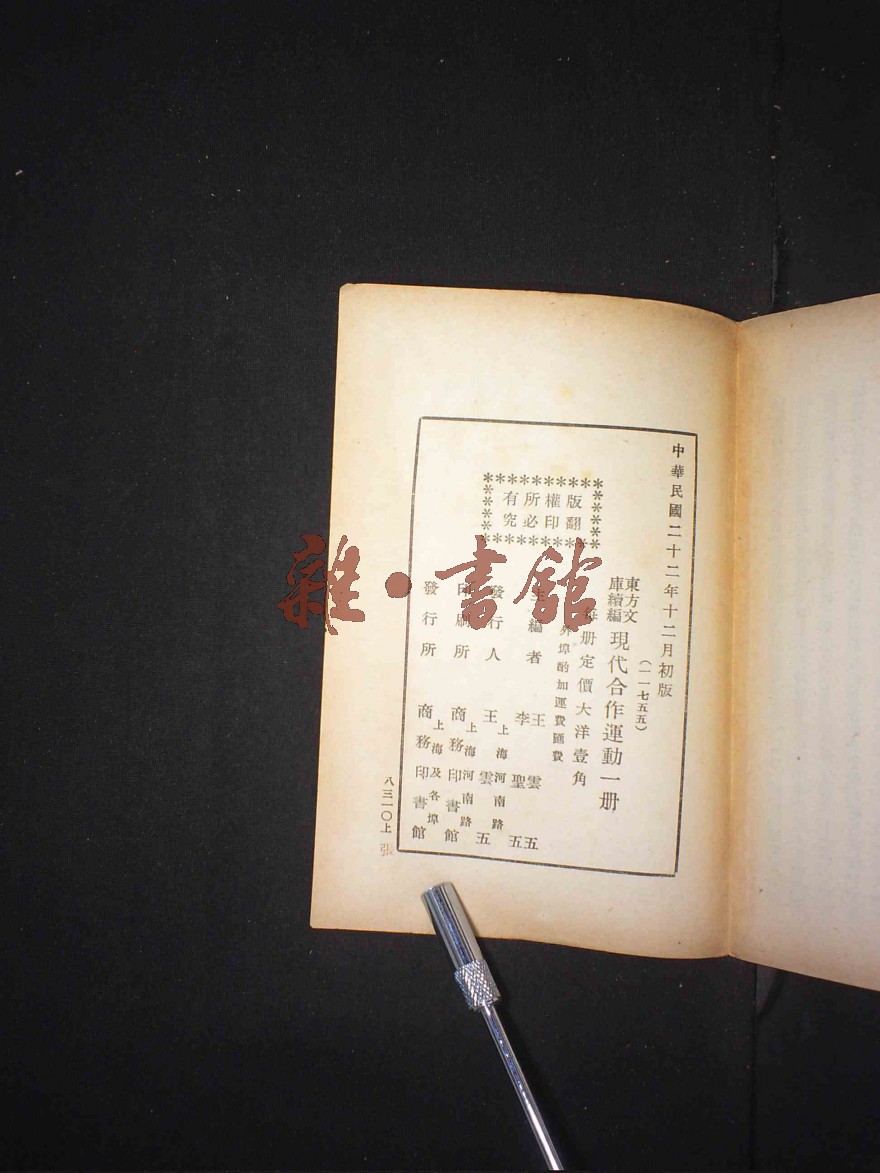 中華民國二十二年十二月初版
(一一七五五)
東方文
庫續編
現代合作運動一册
每册定價大洋壹角
外埠酌加運費匯費
版權所有
翻印必究
主編者
王雲五
李聖五
發行人
上海河南路
王雲五
印刷所
上海河南路
商務印書館
發行所
上海及各埠
商務印書館
八三一〇上
張
雜·書館